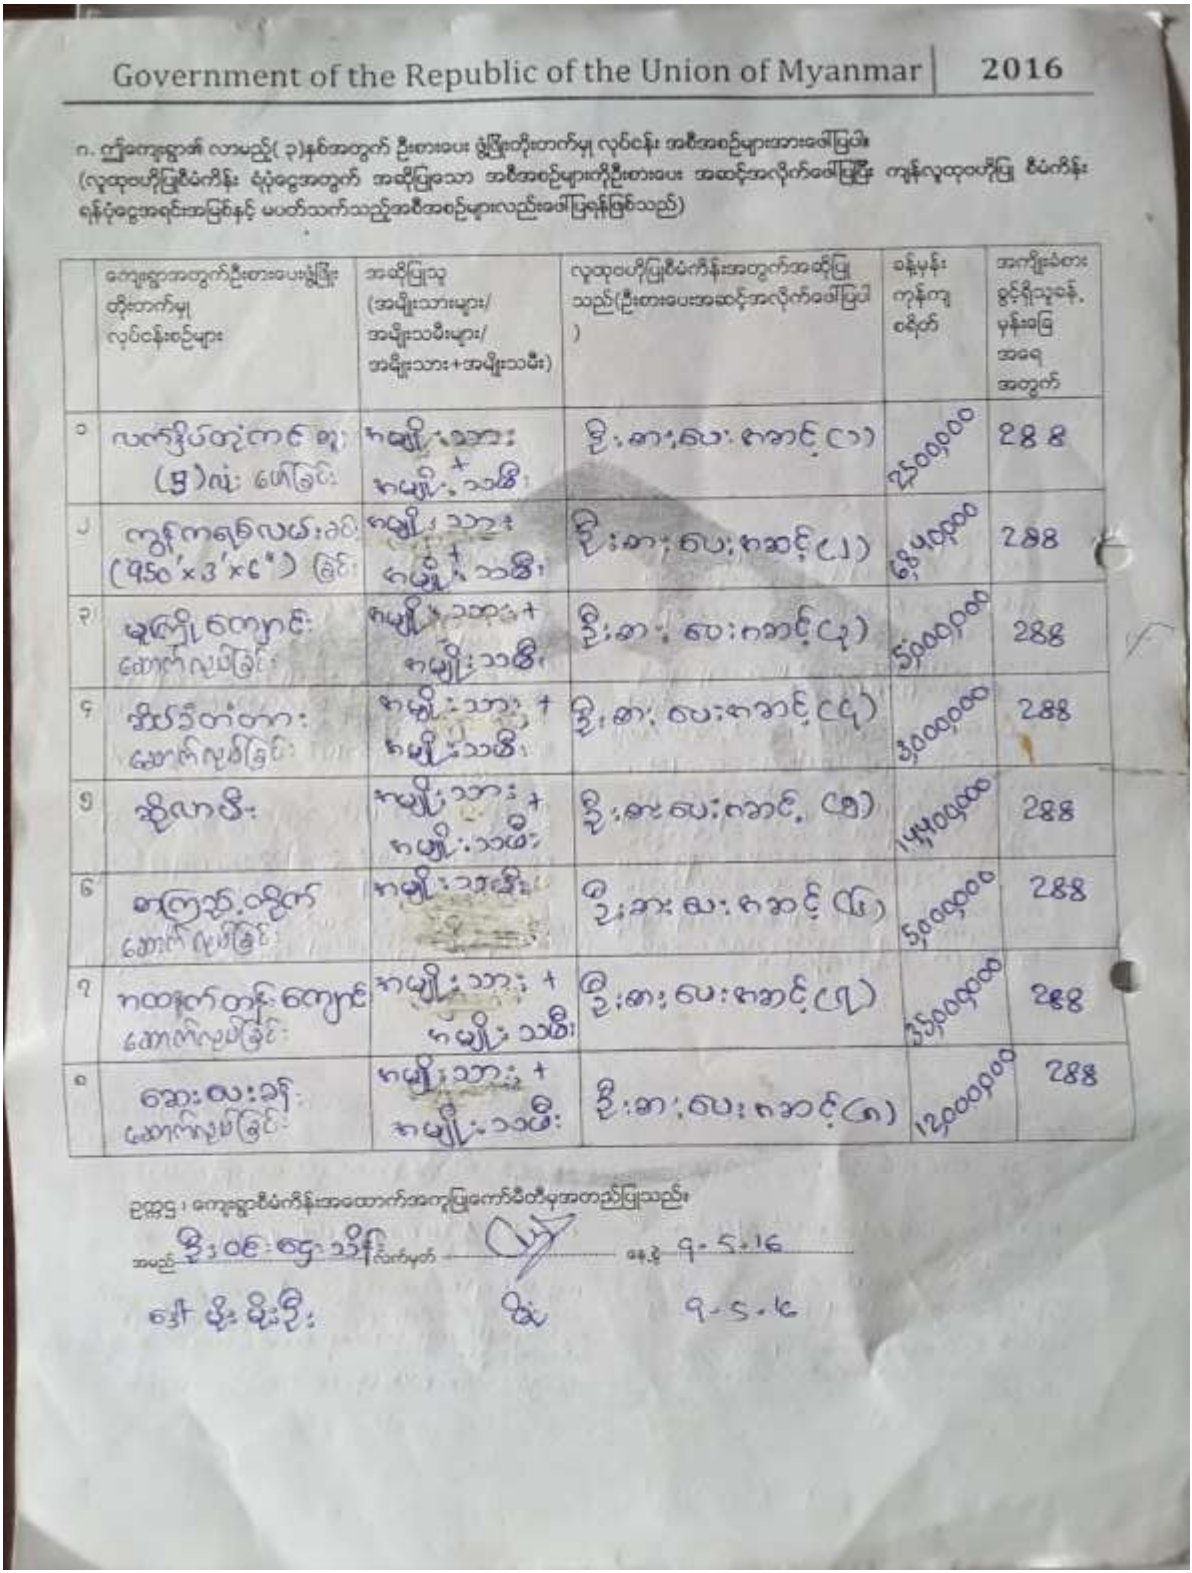 Government of the Republic of the Union of Myanmar | 2016
ဂ. ဤကျေးရွာ၏ လာမည့်( ၃)နှစ်အတွက် ဦးစားပေး ဖွံ့ဖြိုးတိုးတက်မှု လုပ်ငန်း အစီအစဉ်များအားဖေါ်ပြပါ။
(လူထုဗဟိုပြုစီမံကိန်း ရံပုံငွေအတွက် အဆိုပြုသော အစီအစဉ်များကိုဦးစားပေး အဆင့်အလိုက်ဖေါ်ပြပြီး ကျန်လူထုဗဟိုပြု စီမံကိန်း
ရန်ပုံငွေအရင်းအမြစ်နှင့် မပတ်သက်သည့်အစီအစဉ်များလည်းဖေါ်ပြရန်ဖြစ်သည်)
ကျေးရွာအတွက်ဦးစားပေးဖွံ့ဖြိုး
တိုးတက်မှု
လုပ်ငန်းစဉ်များ
အဆိုပြုသူ
(အမျိုးသားများ/
အမျိုးသမီးများ/
အမျိုးသား+အမျိုးသမီး)
လူထုဗဟိုပြုစီမံကိန်းအတွက်အဆိုပြု
သည်(ဦးစားပေးအဆင့်အလိုက်ဖေါ်ပြပါ
)
ခန့်မှန်း
ကုန်ကျ
စရိတ်
အကျိုးခံစား
ခွင့်ရှိသူခန့်
မှန်းခြေ
အရေ
အတွက်
၁
လက်နှိပ်တုံကင် တူး
(၅)လုံး ဖော်ခြင်း
အမျိုးသား
+
အမျိုးသမီး
ဦးစားပေးအဆင့်(၁)
2,500,000
288
၂
ကွန်ကရစ်လမ်းခင်း
(950'x3'x6") ခြင်း
အမျိုးသား
+
အမျိုးသမီး
ဦးစားပေးအဆင့်(၂)
6,840,000
288
၃
မူကြိုကျောင်း
ဆောက်လုပ်ခြင်း
အမျိုးသား+
အမျိုးသမီး
ဦးစားပေးအဆင့်(၃)
5,000,000
288
၄
အိပ်ခုံတံတား
ဆောက်လုပ်ခြင်း
အမျိုးသား+
အမျိုးသမီး
ဦးစားပေးအဆင့်(၄)
3,000,000
288
၅
ဆိုလာမီး
အမျိုးသား+
အမျိုးသမီး
ဦးစားပေးအဆင့်(၅)
14,400,000
288
၆
စာကြည့်တိုက်
ဆောက်လုပ်ခြင်း
ဦးစားပေးအဆင့်(၆)
5,000,000
288
၇
အထက်တန်းကျောင်း
ဆောက်လုပ်ခြင်း
အမျိုးသား+
အမျိုးသမီး
ဦးစားပေးအဆင့်(၇)
35,000,000
288
၈
ဆေးပေးခန်း
ဆောက်လုပ်ခြင်း
အမျိုးသား+
အမျိုးသမီး
ဦးစားပေးအဆင့်(၈)
12,000,000
288
ဥက္ကဋ္ဌ၊ ကျေးရွာစီမံကိန်းအထောက်အကူပြုကော်မီတီမှအတည်ပြုသည်။
အမည် ဦးဝင်းဌေးသိန်း လက်မှတ် နေ့စွဲ ၅-5-16
ဒေါ်မိုးမိုးဦး ၅-5-16